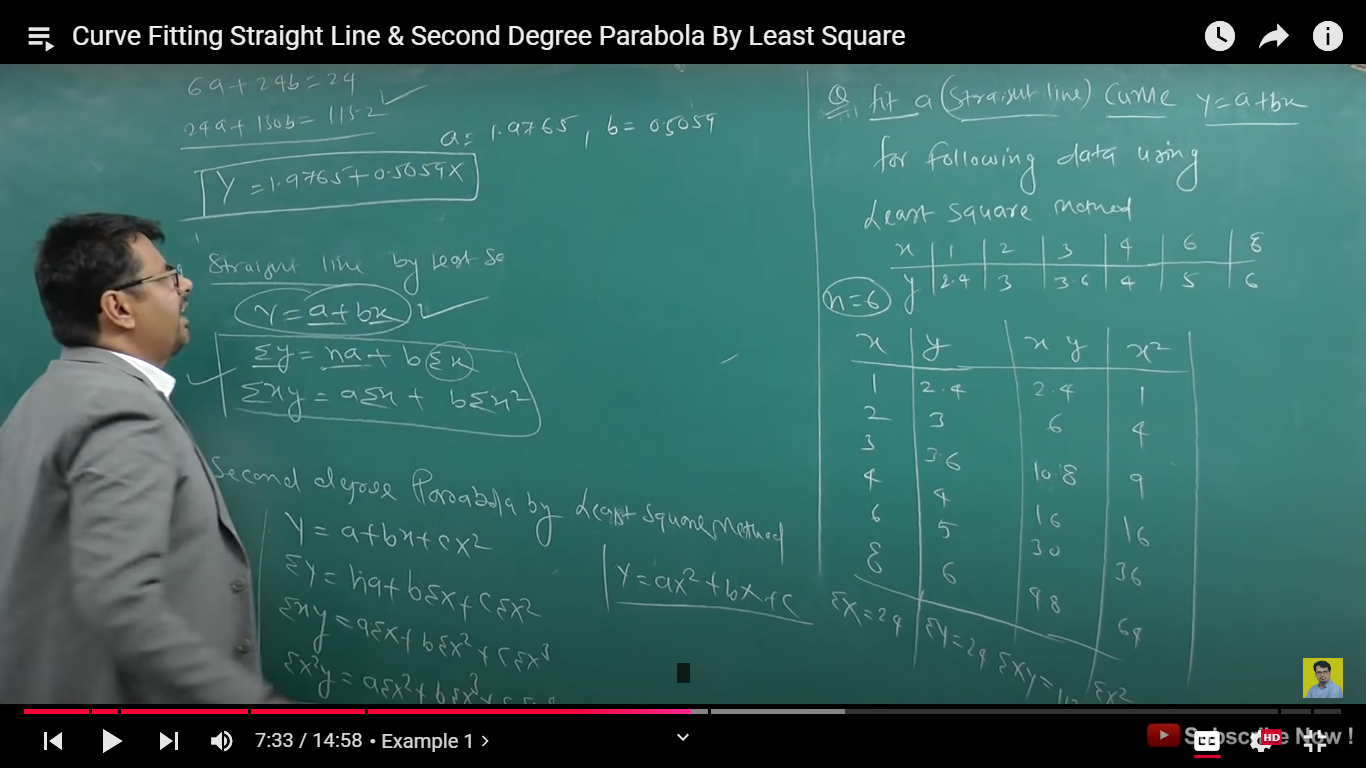 Curve Fitting Straight Line & Second Degree Parabola By Least Square
6a+24b=24
24a+130b=113.2
a=1.9765, b=0.5059
Y=1.9765+0.5059X
Straight line by Least Sq
Y=a+bx
Σy=na+bΣx
Σxy=aΣx+bΣx²
Second degree Parabola by Least Square Method
Y=a+bx+cx²
Σy=na+bΣx+cΣx²
Σxy=aΣx+bΣx²+cΣx³
Σx²y=aΣx²+bΣx³+
Y=ax²+bx+c
Q fit a (Straight line) Curve y=a+bx
for following data using
Least Square Method
x 1 2 3 4 6 8
y 2.4 3 3.6 4 5 6
n=6
x y xy x²
1 2.4 2.4 1
2 3 6 4
3 3.6 10.8 9
4 4 16 16
6 5 30 36
8 6 48 64
Σx=24 Σy=24 Σxy= Σx²
7:33 / 14:58 • Example 1
CC
HD
Subscribe Now !